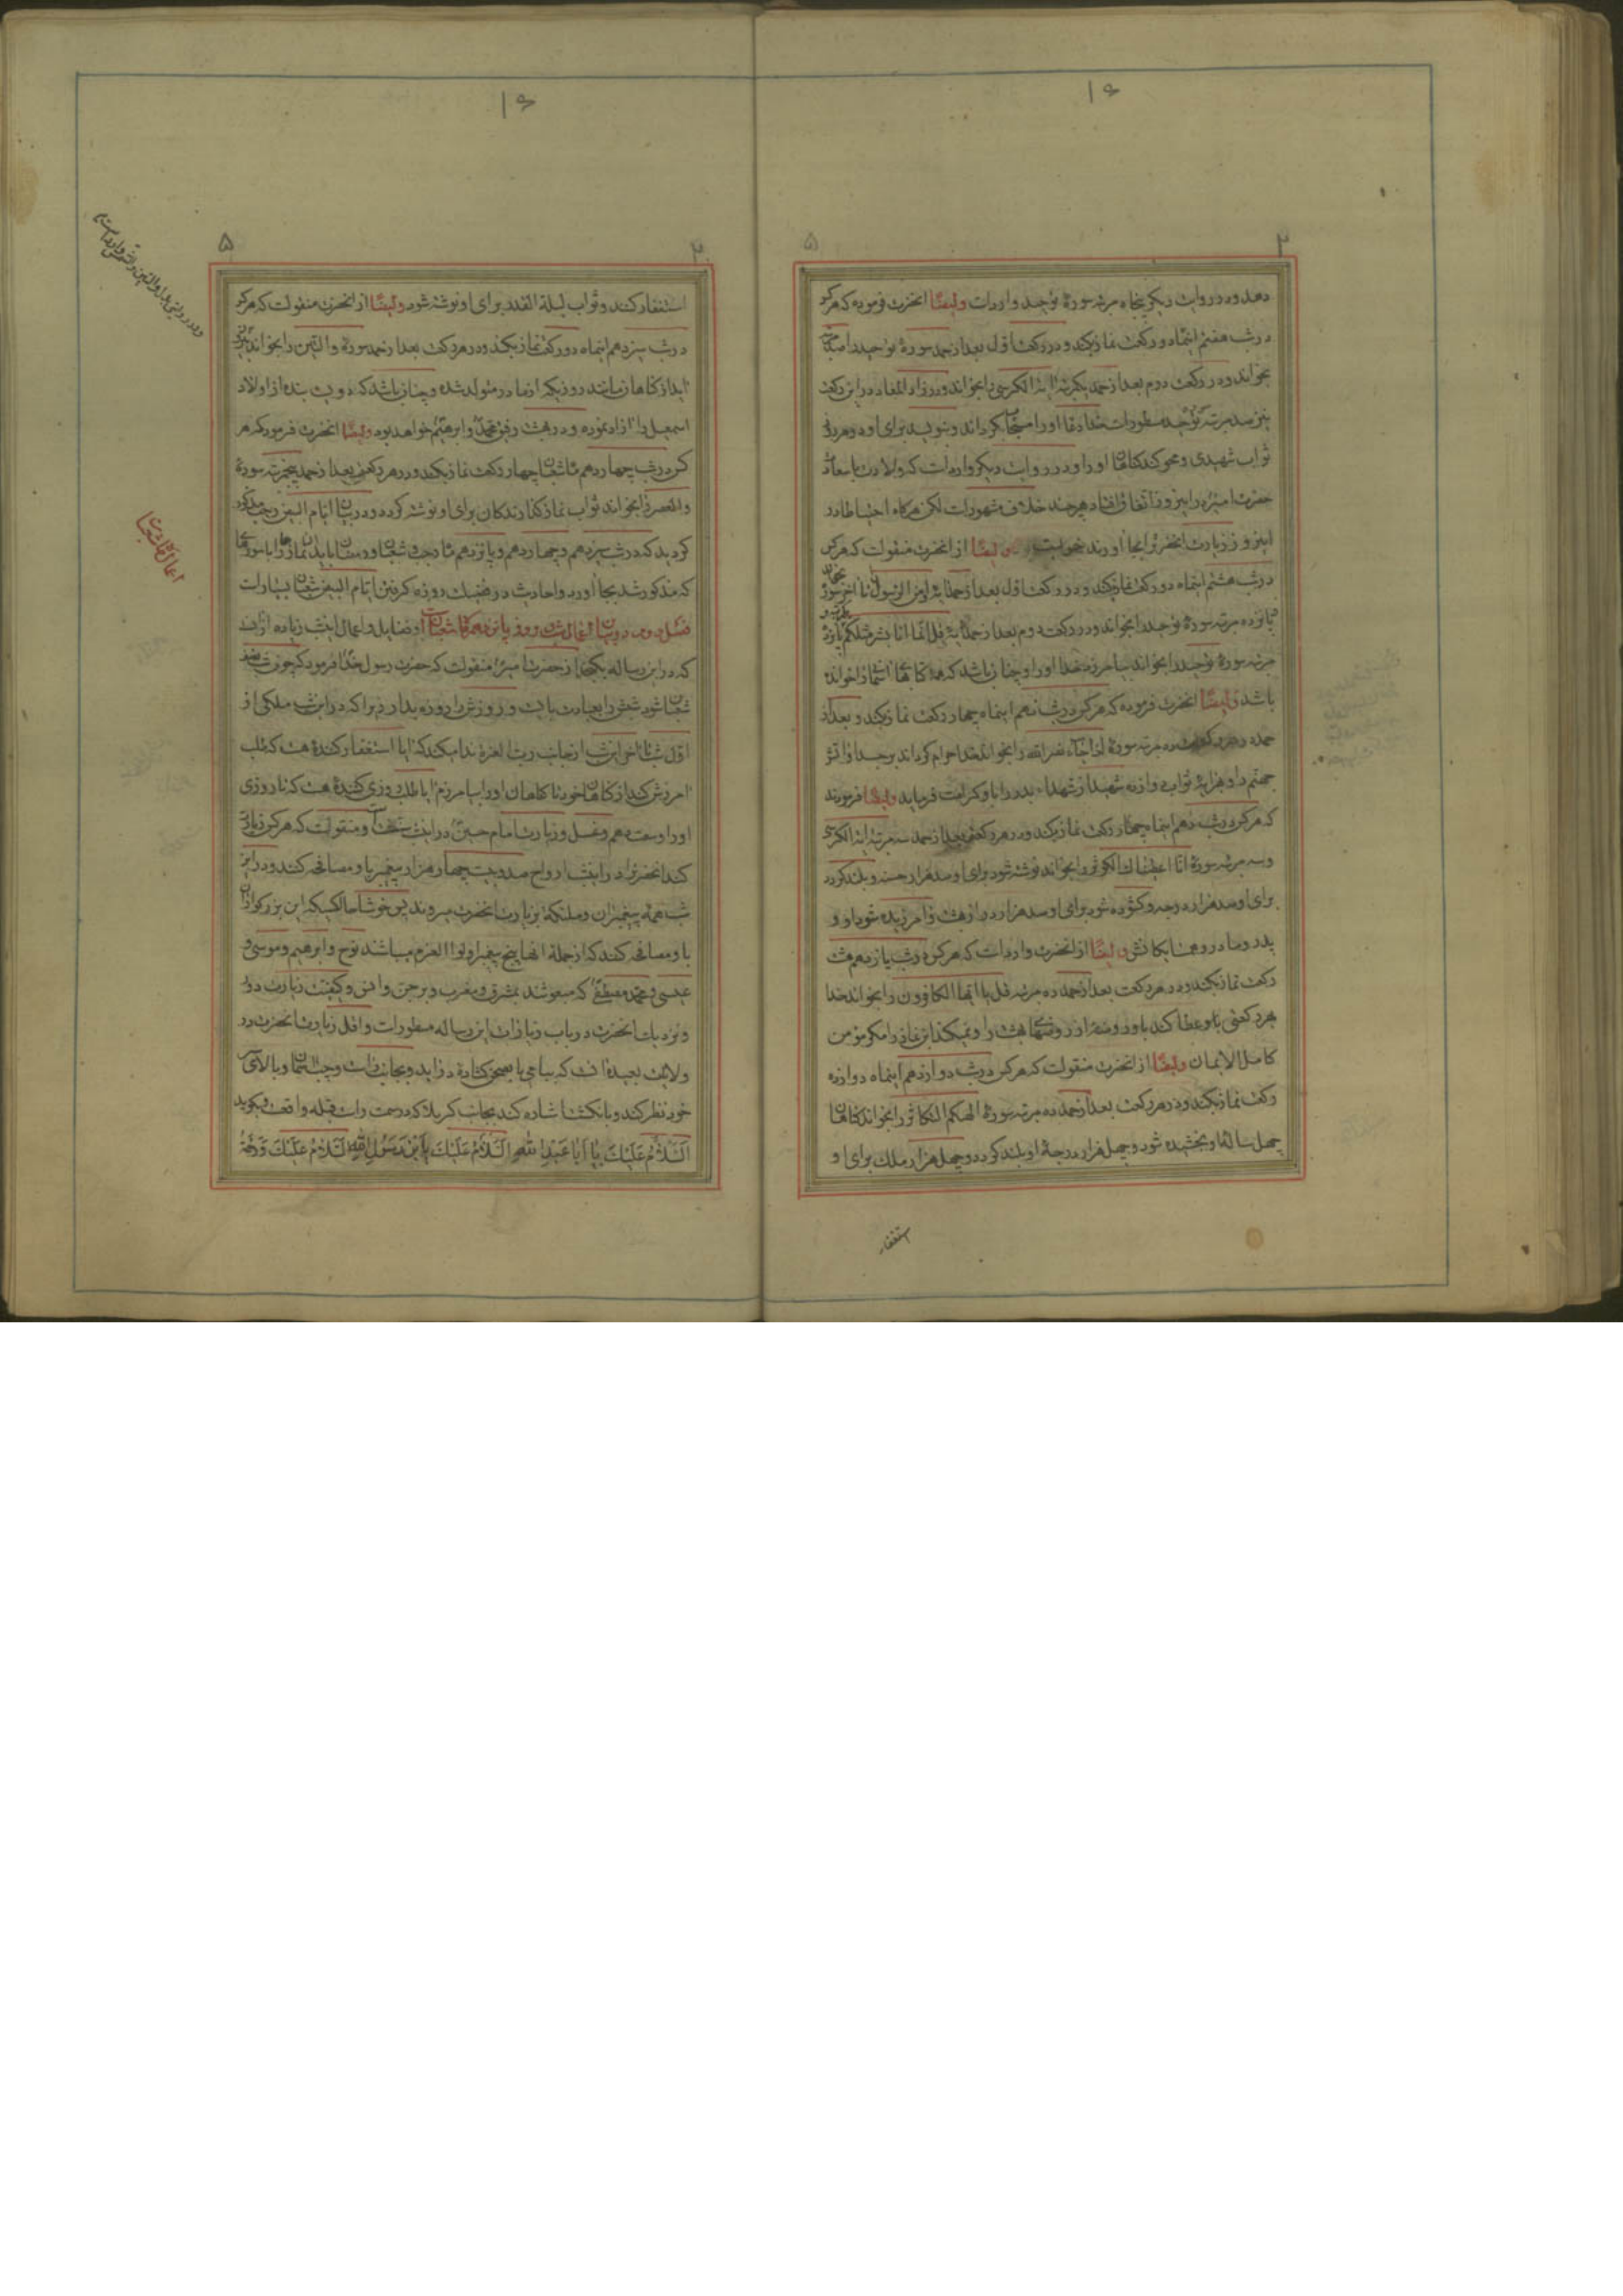 ۱۶
۲ ۵
دهد و در روایت دیکر پنجاه مرتبه سورهٔ توحید وارداست و ایضًا انحضرت فرموده که هرکه
در شب هفتم اینماه دو رکعت نماز بکند و در رکعت اول بعد از حمد سورهٔ توحید را صد مرتبه
بخواند و در رکعت دوم بعد از حمد یکمرتبه ایة الکرسی را بخواند و در زاد المعاد در این رکعت
نیز صد مرتبه توحید مسطوراست خدا دعا اورا مستجاب کرداند و بنویسد برای او در هر روز
ثواب شهیدی و محو کند کناهان اورا و در روایت دیکر وارداست که ولادت با سعادت
حضرت امیر در اینروز اتفاق افتاد هرچند خلاف مشهوراست لکن هرکاه احتیاطا در
اینروز زیارت انحضرترا بجا اورند خوبست و ایضًا از انحضرت منقولست که هرکس
در شب هشتم اینماه دو رکعت نماز بکند و در رکعت اول بعد از حمد ایه امن الرسول تا اخر سوره
پانزده مرتبه سورهٔ توحید را بخواند و در رکعت دوم بعد از حمد ایه قل انما انا بشر مثلکم پانزده
مرتبه سورهٔ توحید را بخواند بیامرزد خدا اورا و چنان باشد که همه کتابهای اسمانرا خوانده
باشد و ایضًا انحضرت فرموده که هرکس در شب نهم اینماه چهار رکعت نماز بکند و بعد از
حمد در هر رکعت ده مرتبه سورهٔ اذا جاء نصر الله را بخواند خدا حرام کرداند بر جسد او اتش
جهنم را و بهر ایهٔ ثواب دوازده شهید از شهداء بدر را باو کرامت فرماید و ایضًا فرمودند
که هرکس در شب دهم اینماه چهار رکعت نماز بکند و در هر رکعتی بعد از حمد سه مرتبه ایة الکرسی
و سه مرتبه سورهٔ انا اعطیناك الکوثر را بخواند نوشته شود برای او صد هزار حسنه و بلند کردد
برای او صد هزار درجه و کشوده شود برای او صد هزار در از بهشت و امرزیده شود او و
پدر و مادر و همسایکانش و ایضًا از انحضرت وارداست که هرکس در شب یازدهم هشت
رکعت نماز بکند و در هر رکعت بعد از حمد ده مرتبه قل یا ایها الکافرون را بخواند خدا
بهر رکعتی باو عطا کند باو روضهٔ از روضهای بهشت را و نمیکند این نماز را مکر مؤمن
کامل الایمان و ایضًا از انحضرت منقولست که هرکس در شب دوازدهم اینماه دوازده
رکعت نماز بکند و در هر رکعت بعد از حمد ده مرتبه سورهٔ الهکم التکاثر را بخواند کناهان
چهل سالهٔ او بخشیده شود و چهل هزار درجهٔ او بلند کردد و چهل هزار ملك برای او
استغفار
۱۶
۲ ۵
استغفار کنند و ثواب لیلة القدر برای او نوشته شود و ایضًا از انحضرت منقولست که هرکه
در شب سیزدهم اینماه دو رکعت نماز بکند و در هر رکعت بعد از حمد سورهٔ و التین را بخواند
از کناهان مانند روزیکه از مادر متولد شده و چنان باشد که دویست بنده از اولاد
اسمعیل را ازاد نموده و در بهشت رفیق محمد و ابرهیم خواهد بود و ایضًا انحضرت فرمود که هر
کس در شب چهاردهم ماه شعبان چهار رکعت نماز بکند و در هر رکعتی بعد از حمد پنجمرتبه سورهٔ
والعصر را بخواند ثواب نماز کذارندکان برای او نوشته کردد و در بیان ایام البیض رجب مذکور
کردید که در شب سیزدهم و چهاردهم و پانزدهم ماه رجب و شعبان و رمضان باید نمازها را با سورهای
که مذکور شد بجا اورد و احادیث در فضیلت روزه کرفتن ایام البیض شعبان بسیاراست
فصل دوم در بیان اعمال شب و روز پانزدهم ماه شعبان و فضایل و اعمال اینشب زیاده از انست
که در این رساله بکنجد از حضرت امیر منقولست که حضرت رسول خدا فرمود که چون شب نصف
شعبان شود شبش را بعبادت بایست و روزش را روزه بدار زیرا که در اینشب ملکی از
اول شب تا اخر اینشب از جانب رب العزة ندا میکند که ایا استغفار کنندهٔ هست که طلب
امرزش کند از کناهان خود تا کناهان اورا بیامرزم ایا طلب روزی کنندهٔ هست که تا روزی
اورا وسعت دهم و غسل و زیارت امام حسین در اینشب سنت است و منقولست که هرکس زیارت
کند انحضرترا در اینشب ارواح صد و بیست و چهار هزار پیغمبر با او مصافحه کنند و در این
شب همهٔ پیغمبران و ملئکه بزیارت انحضرت میروند پس خوشا حال کسیکه این بزرکواران
با او مصافحه کنند که از جملهٔ انها پنج پیغمبر اولوا العزم میباشند نوح و ابرهیم و موسی و
عیسی و محمد مصطفی که مبعوث شدند بمشرق و مغرب و بر جن و انس و کیفیت زیارت دور
و نزدیك انحضرت در باب زیارات این رساله مسطوراست و اقل زیارت انحضرت در
ولایت بعیده انست که ببامی یا بصحن کشادهٔ در اید و بجانب راست و چپ اسمان و بالای سر
خود نظر کند و بانکشت اشاره کند بجانب کربلا که در سمت راست قبله واقعست و بکوید
اَلسَّلَامُ عَلَیْكَ یَا اَبَا عَبْدِ اللّٰهِ اَلسَّلَامُ عَلَیْكَ یَابْنَ رَسُولِ اللّٰهِ اَلسَّلَامُ عَلَیْكَ وَ رَحْمَةُ
و در روایتی بدل والتین والشمس وارد است
اعمال نصف شعبان